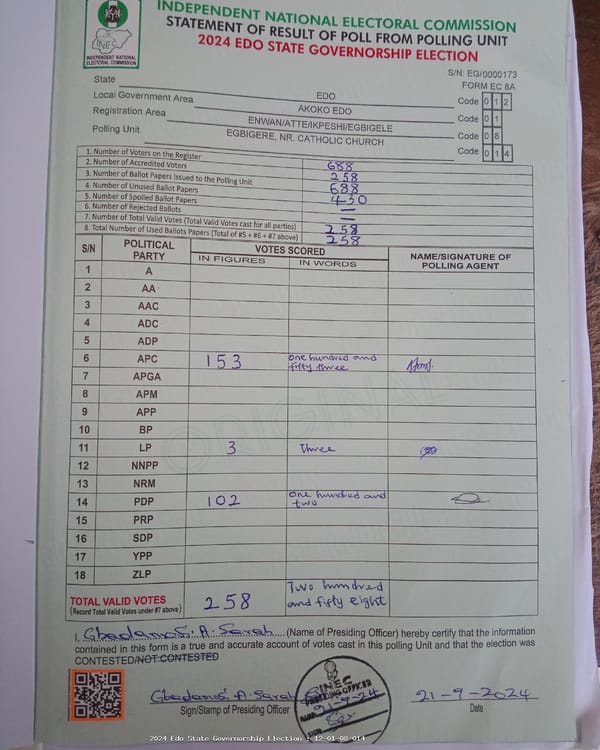 INDEPENDENT NATIONAL ELECTORAL COMMISSION
STATEMENT OF RESULT OF POLL FROM POLLING UNIT
2024 EDO STATE GOVERNORSHIP ELECTION
INEC
INDEPENDENT NATIONAL
ELECTORAL COMMISSION
S/N: EG/0000173
FORM EC 8A
State EDO Code 0 1 2
Local Government Area AKOKO EDO Code 0 1
Registration Area ENWAN/ATTE/IKPESHI/EGBIGELE Code 0 8
Polling Unit EGBIGERE, NR. CATHOLIC CHURCH Code 0 1 4
1. Number of Voters on the Register 688
2. Number of Accredited Voters 258
3. Number of Ballot Papers Issued to the Polling Unit 688
4. Number of Unused Ballot Papers 430
5. Number of Spoiled Ballot Papers —
6. Number of Rejected Ballots —
7. Number of Total Valid Votes (Total Valid Votes cast for all parties) 258
8. Total Number of Used Ballots Papers (Total of #5 + #6 + #7 above) 258
S/N POLITICAL PARTY VOTES SCORED NAME/SIGNATURE OF POLLING AGENT
IN FIGURES IN WORDS
1 A
2 AA
3 AAC
4 ADC
5 ADP
6 APC 153 one hundred and fifty three
7 APGA
8 APM
9 APP
10 BP
11 LP 3 Three
12 NNPP
13 NRM
14 PDP 102 one hundred and two
15 PRP
16 SDP
17 YPP
18 ZLP
ORIGINAL
TOTAL VALID VOTES 258 Two hundred and fifty eight
(Record Total Valid Votes under #7 above)
I, Gbadamosi A. Sarah (Name of Presiding Officer) hereby certify that the information
contained in this form is a true and accurate account of votes cast in this polling Unit and that the election was
CONTESTED/NOT CONTESTED
Gbadamosi A. Sarah 21-9-2024
Sign/Stamp of Presiding Officer Date
INEC
PRESIDING OFFICER
21-9-24
2024 Edo State Governorship Election - 12-01-08-014